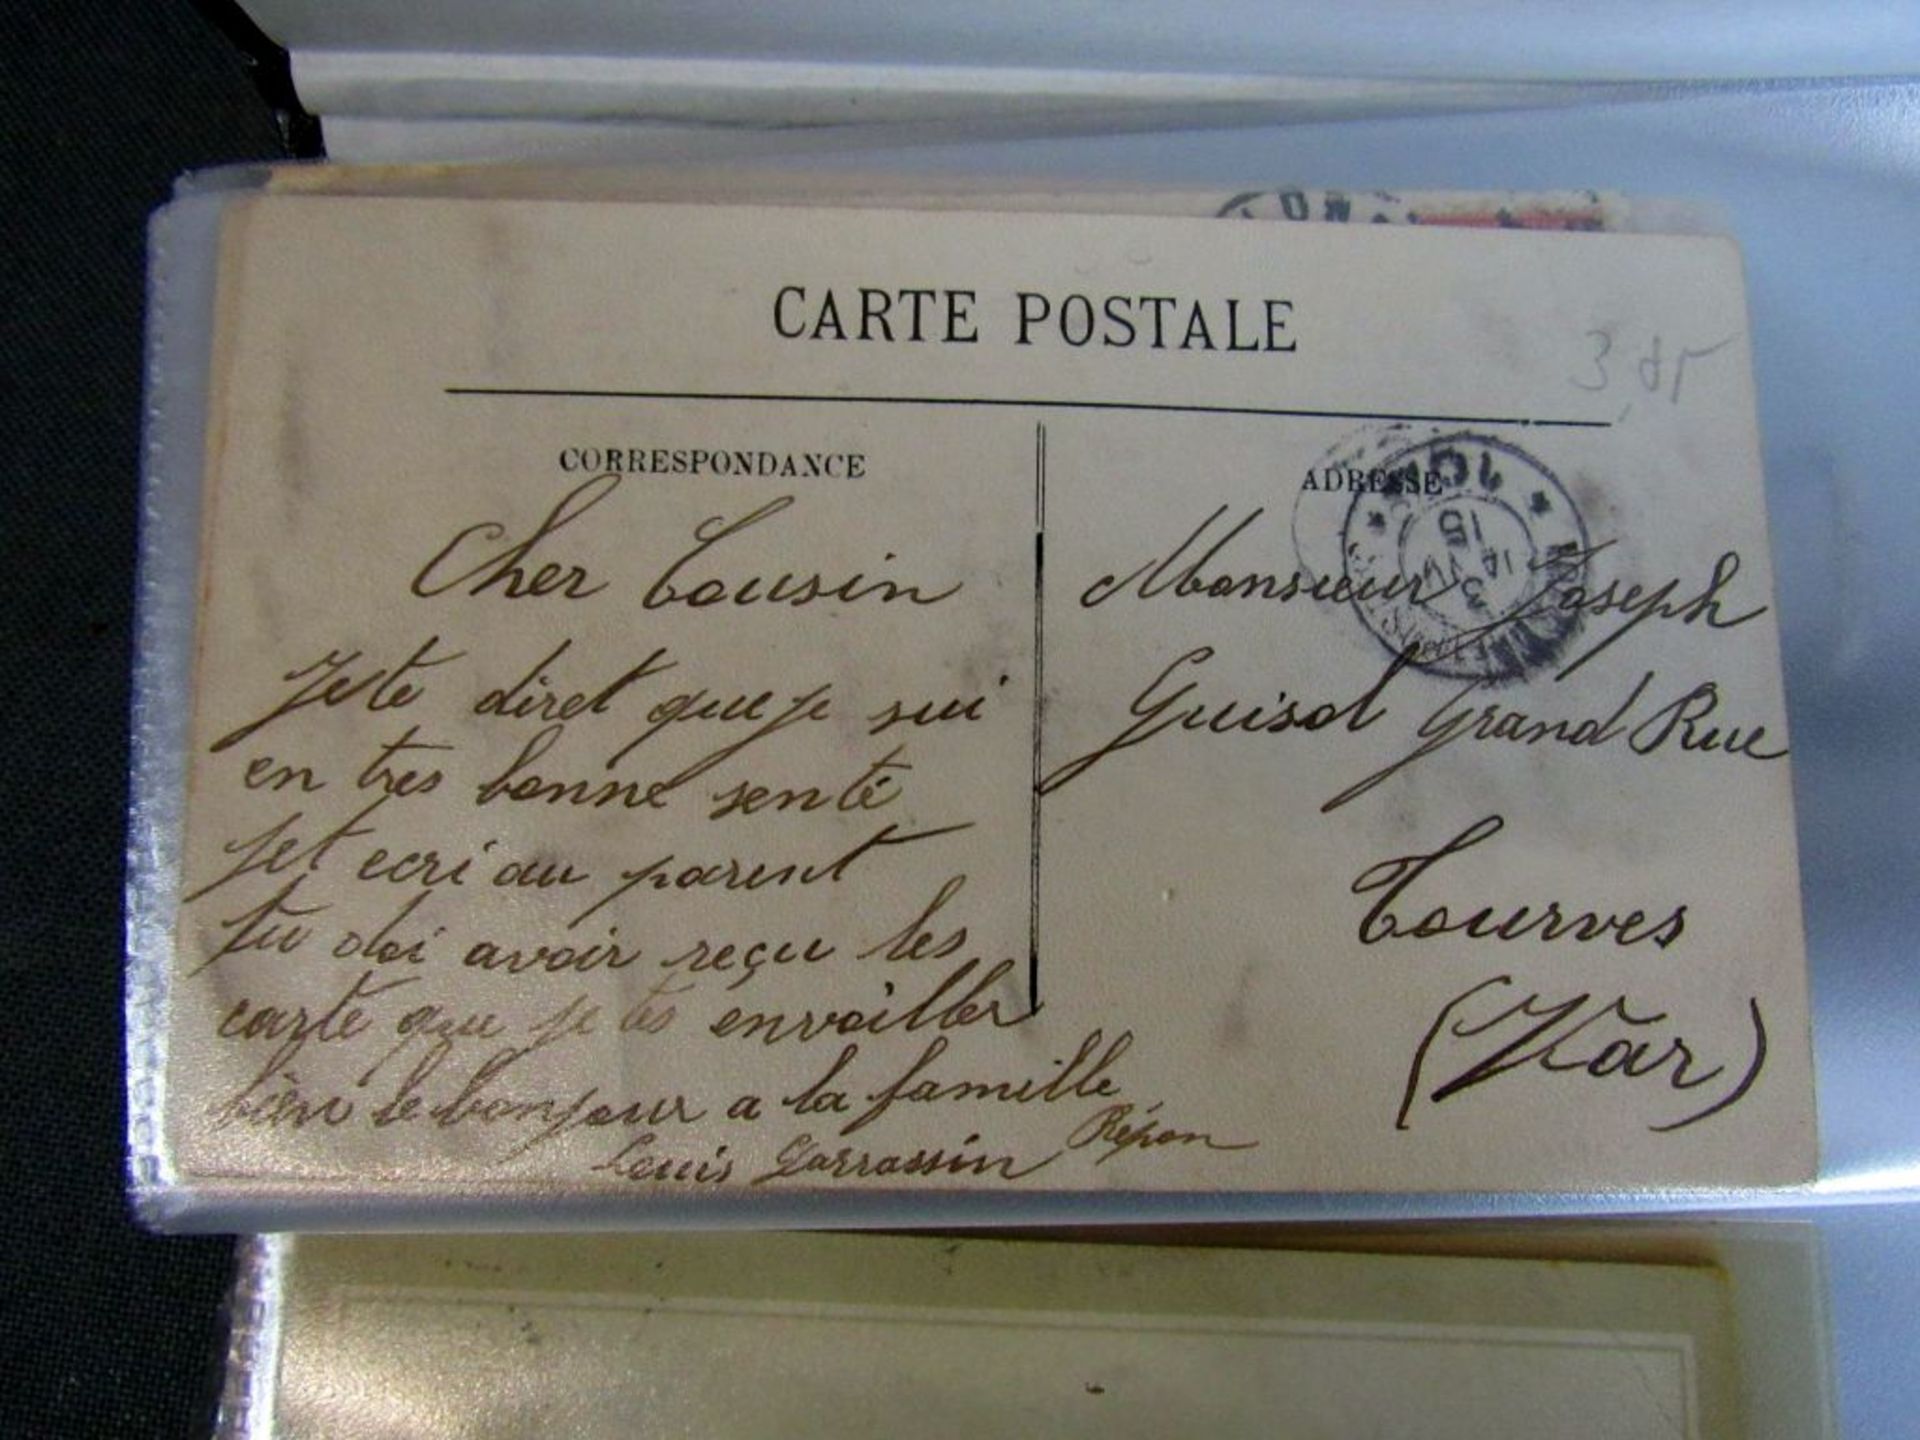 CARTE POSTALE
3,85
CORRESPONDANCE
Cher Cousin
Je te diret que je sui
en tres bonne senté
jet ecri au parent
tu doi avoir reçu les
carte que je tes envoiller
bien le bonjour a la famille
Louis Garrassin Répon
ADRESSE
Monsieur Joseph
Guisol Grand Rue
Tourves
(Var)